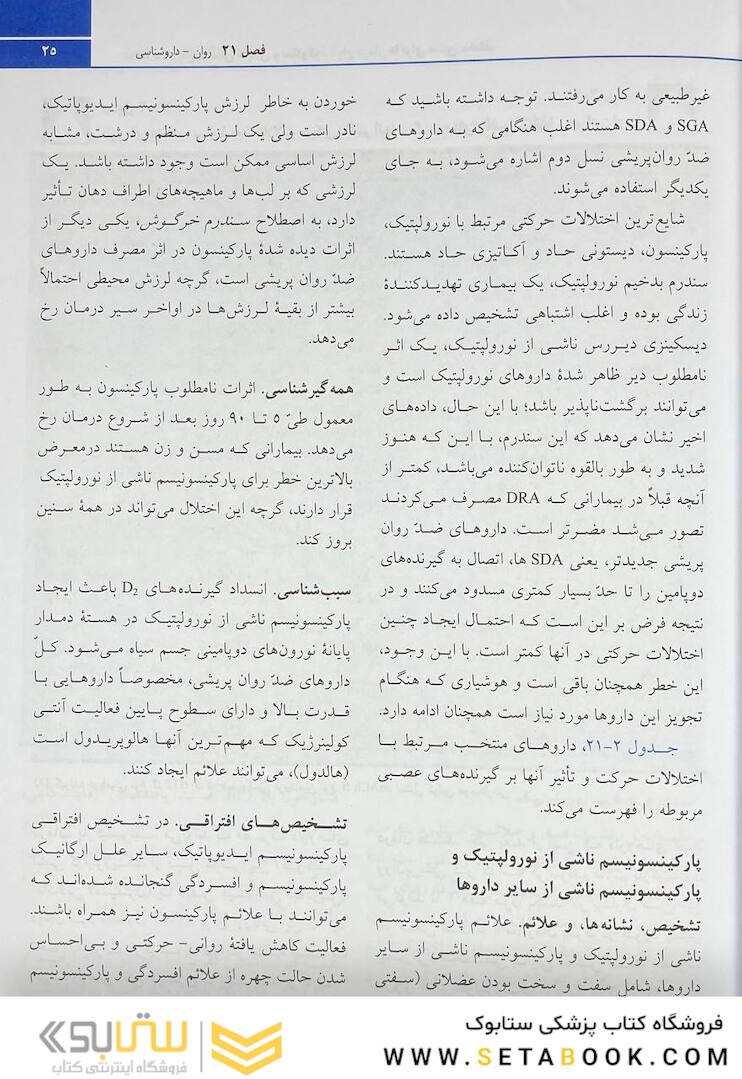 فصل ۲۱ روان - داروشناسی
۲۵
غیرطبیعی به کار می‌رفتند. توجه داشته باشید که
SGA و SDA هستند اغلب هنگامی که به داروهای
ضدّ روان‌پریشی نسل دوم اشاره می‌شود، به جای
یکدیگر استفاده می‌شوند.
شایع‌ترین اختلالات حرکتی مرتبط با نورولپتیک،
پارکینسون، دیستونی حاد و آکاتیزی حاد هستند.
سندرم بدخیم نورولپتیک، یک بیماری تهدیدکنندهٔ
زندگی بوده و اغلب اشتباهی تشخیص داده می‌شود.
دیسکینزی دیررس ناشی از نورولپتیک، یک اثر
نامطلوب دیر ظاهر شدهٔ داروهای نورولپتیک است و
می‌توانند برگشت‌ناپذیر باشد؛ با این حال، داده‌های
اخیر نشان می‌دهد که این سندرم، با این که هنوز
شدید و به طور بالقوه ناتوان‌کننده می‌باشد، کمتر از
آنچه قبلاً در بیمارانی که DRA مصرف می‌کردند
تصور می‌شد مضرتر است. داروهای ضدّ روان
پریشی جدیدتر، یعنی SDA ها، اتصال به گیرنده‌های
دوپامین را تا حدّ بسیار کمتری مسدود می‌کنند و در
نتیجه فرض بر این است که احتمال ایجاد چنین
اختلالات حرکتی در آنها کمتر است. با این وجود،
این خطر همچنان باقی است و هوشیاری که هنگام
تجویز این داروها مورد نیاز است همچنان ادامه دارد.
جدول ۲-۲۱، داروهای منتخب مرتبط با
اختلالات حرکت و تأثیر آنها بر گیرنده‌های عصبی
مربوطه را فهرست می‌کند.
پارکینسونیسم ناشی از نورولپتیک و
پارکینسونیسم ناشی از سایر داروها
تشخیص، نشانه‌ها، و علائم. علائم پارکینسونیسم
ناشی از نورولپتیک و پارکینسونیسم ناشی از سایر
داروها، شامل سفت و سخت بودن عضلانی (سفتی
خوردن به خاطر لرزش پارکینسونیسم ایدیوپاتیک،
نادر است ولی یک لرزش منظم و درشت، مشابه
لرزش اساسی ممکن است وجود داشته باشد. یک
لرزشی که بر لب‌ها و ماهیچه‌های اطراف دهان تأثیر
دارد، به اصطلاح سندرم خرگوش، یکی دیگر از
اثرات دیده شدهٔ پارکینسون در اثر مصرف داروهای
ضدّ روان پریشی است، گرچه لرزش محیطی احتمالاً
بیشتر از بقیهٔ لرزش‌ها در اواخر سیر درمان رخ
می‌دهد.
همه‌گیرشناسی. اثرات نامطلوب پارکینسون به طور
معمول طیّ ۵ تا ۹۰ روز بعد از شروع درمان رخ
می‌دهد. بیمارانی که مسن و زن هستند درمعرض
بالاترین خطر برای پارکینسونیسم ناشی از نورولپتیک
قرار دارند، گرچه این اختلال می‌تواند در همهٔ سنین
بروز کند.
سبب‌شناسی. انسداد گیرنده‌های D₂ باعث ایجاد
پارکینسونیسم ناشی از نورولپتیک در هستهٔ دمدار
پایانهٔ نورون‌های دوپامینی جسم سیاه می‌شود. کلّ
داروهای ضدّ روان پریشی، مخصوصاً داروهایی با
قدرت بالا و دارای سطوح پایین فعالیت آنتی
کولینرژیک که مهم‌ترین آنها هالوپریدول است
(هالدول)، می‌توانند علائم ایجاد کنند.
تشخیص‌های افتراقی. در تشخیص افتراقی
پارکینسونیسم ایدیوپاتیک، سایر علل ارگانیک
پارکینسونیسم و افسردگی گنجانده شده‌اند که
می‌توانند با علائم پارکینسون نیز همراه باشند.
فعالیت کاهش یافتهٔ روانی- حرکتی و بی‌احساس
شدن حالت چهره از علائم افسردگی و پارکینسونیسم
فروشگاه کتاب پزشکی ستابوک
WWW.SETABOOK.COM
ستابوک
فروشگاه اینترنتی کتاب